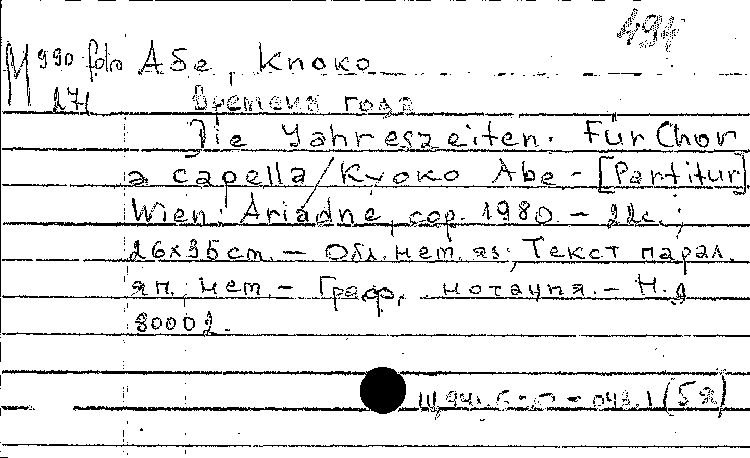 494
М 990 folo Абе, Киоко
271 Времена года
Die Yahreszeiten. Für Chor
a capella / Kyoko Abe - [Partitur]
Wien: Ariadne, cop. 1980 - 22с.;
26x35cm. - Обл. нем. яз; Текст парал.
яп., нем. - Граф. нотация. - Н.д
80002.
(5я)